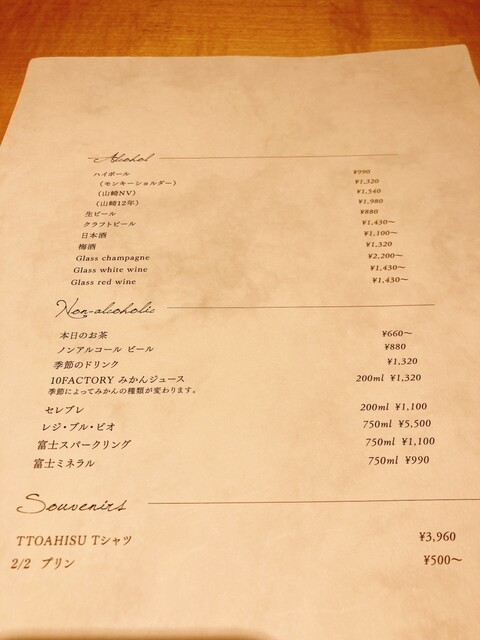 Alcohol
ハイボール ¥990
(モンキーショルダー) ¥1,320
(山崎NV) ¥1,540
(山崎12年) ¥1,980
生ビール ¥880
クラフトビール ¥1,430〜
日本酒 ¥1,100〜
梅酒 ¥1,320
Glass champagne ¥2,200〜
Glass white wine ¥1,430〜
Glass red wine ¥1,430〜
Non-alcoholic
本日のお茶 ¥660〜
ノンアルコール ビール ¥880
季節のドリンク ¥1,320
10FACTORY みかんジュース 200ml ¥1,320
季節によってみかんの種類が変わります。
セレブレ 200ml ¥1,100
レジ・ブル・ビオ 750ml ¥5,500
富士スパークリング 750ml ¥1,100
富士ミネラル 750ml ¥990
Souvenirs
TTOAHISU Tシャツ ¥3,960
2/2 プリン ¥500〜